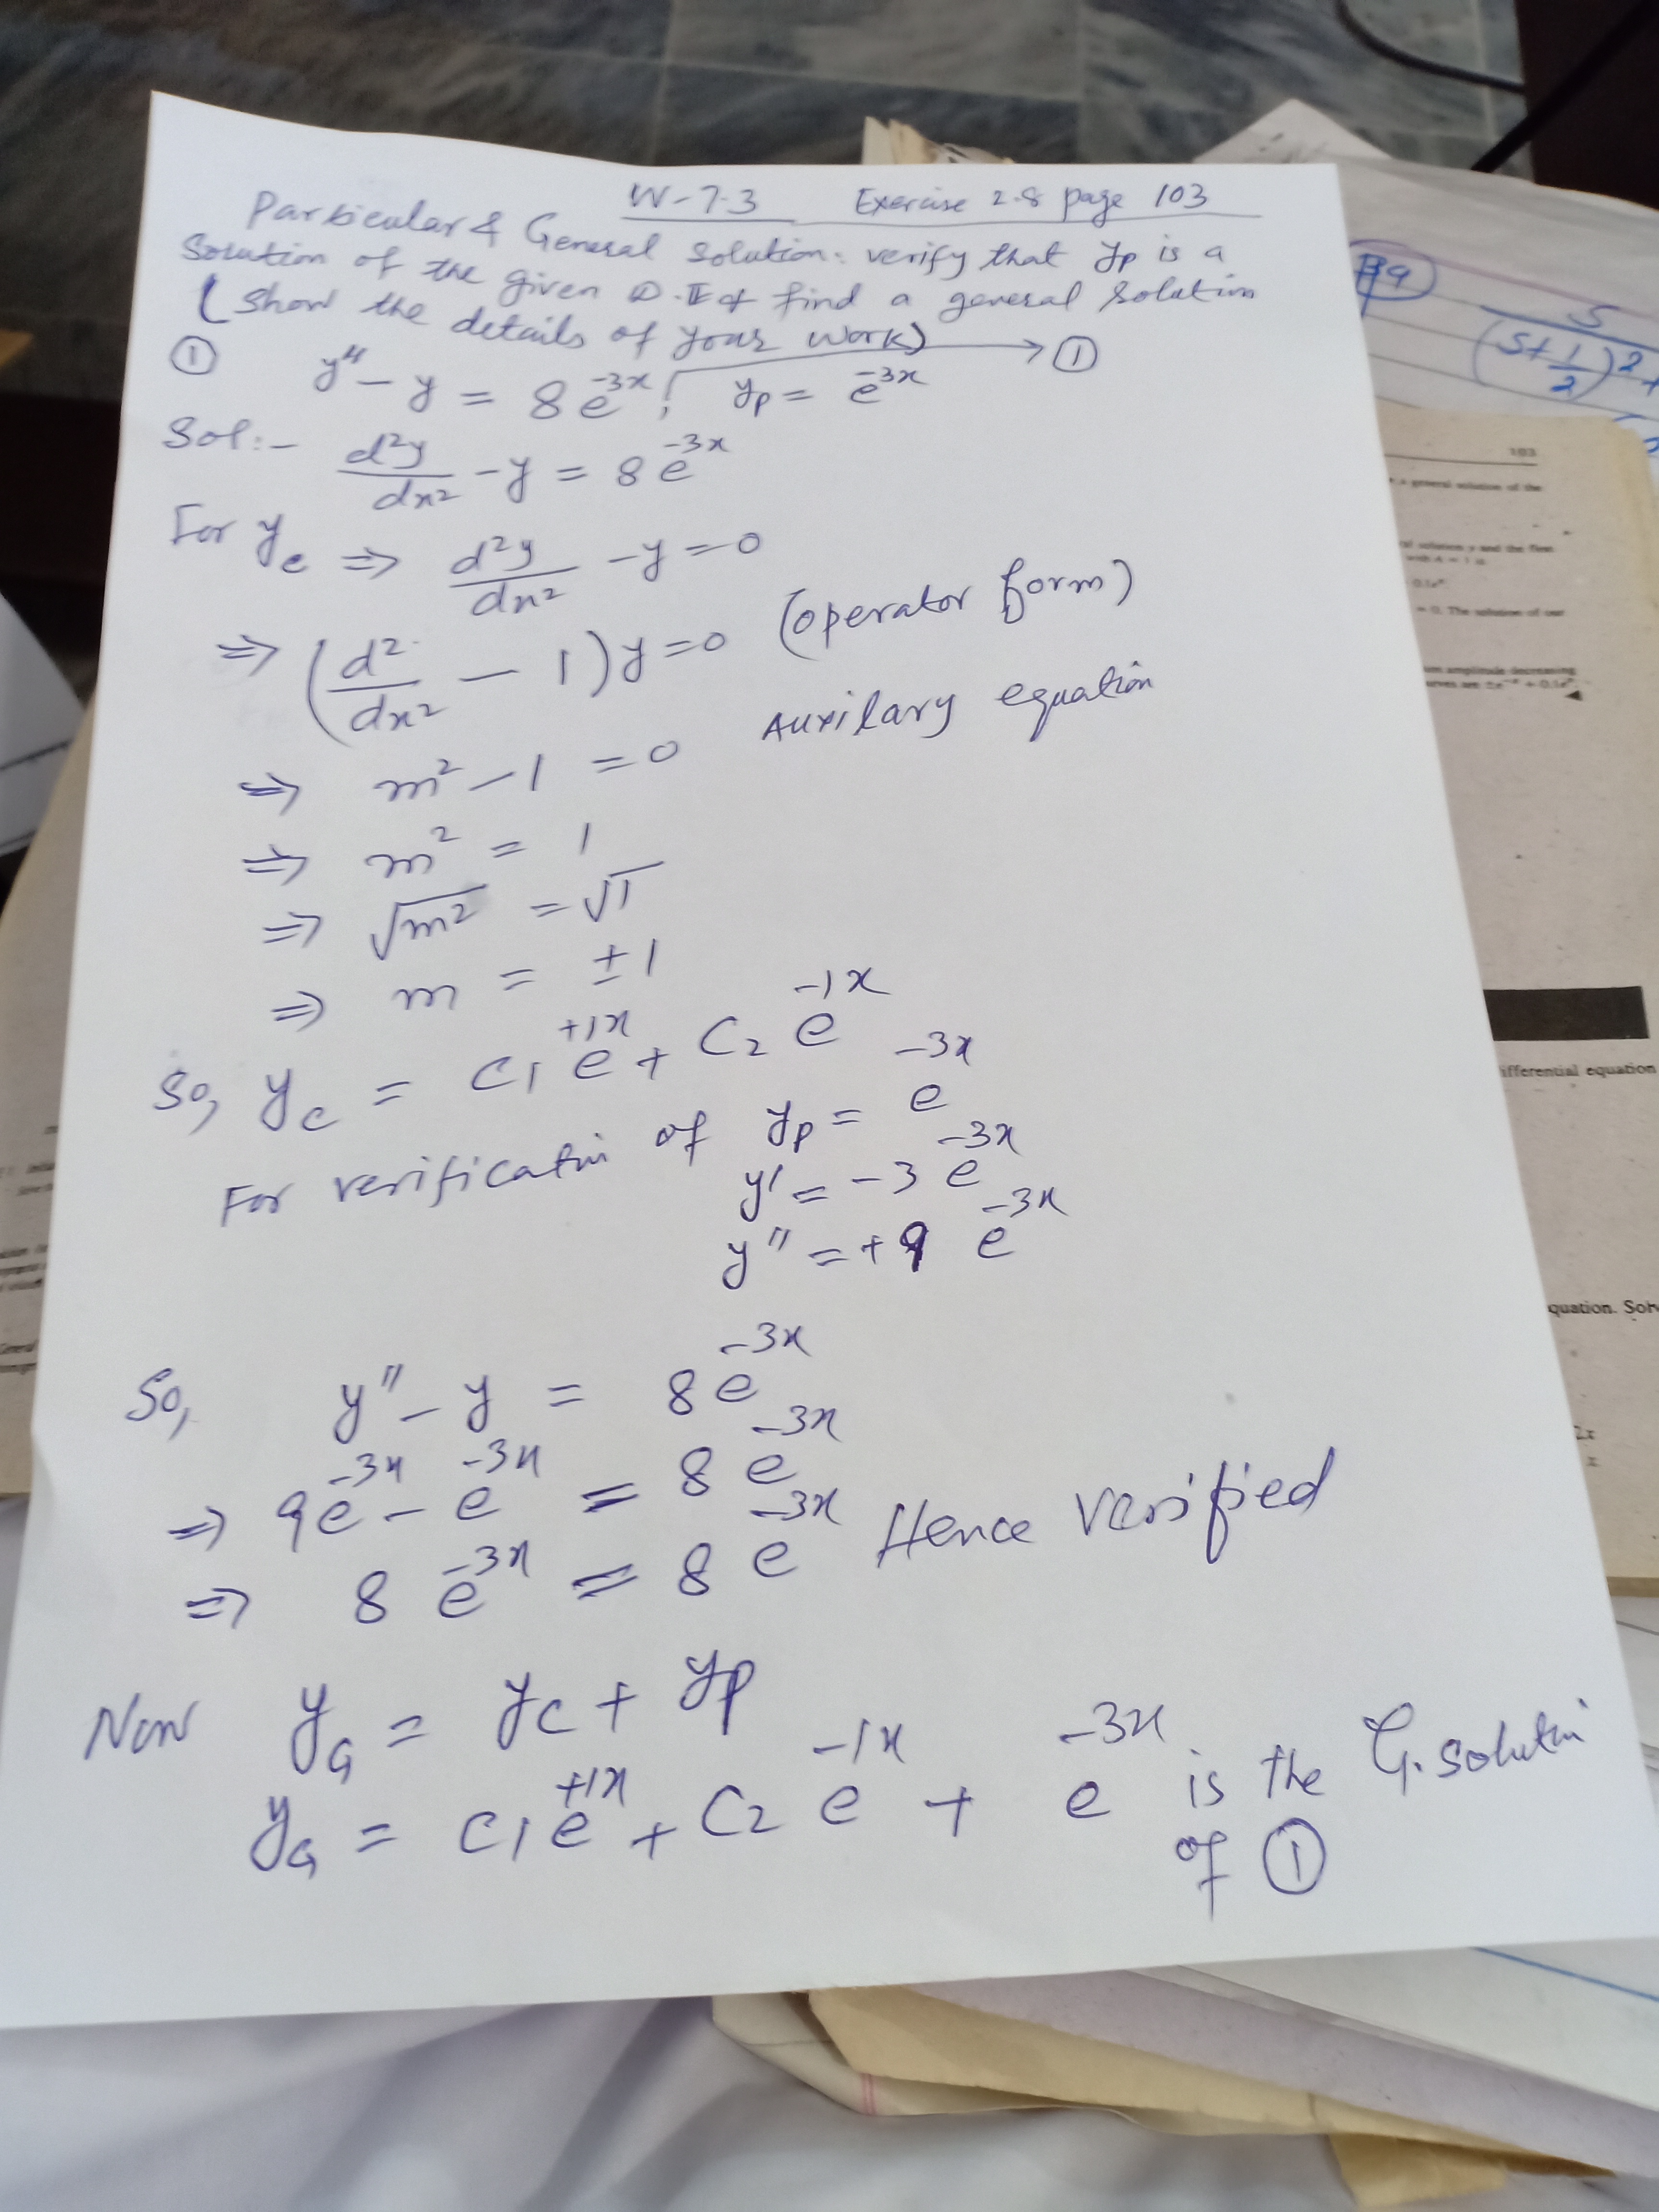 W-7.3 Exercise 2.8 page 103
Particular & General solution: verify that yp is a
solution of the given D.E & find a general solution
(show the details of your work)
① y" - y = 8e^-3x ; yp = e^-3x → ①
Sol:- d²y/dx² - y = 8e^-3x
For yc ⇒ d²y/dx² - y = 0
⇒ (d²/dx² - 1)y = 0 (operator form)
⇒ m² - 1 = 0 Auxilary equation
⇒ m² = 1
⇒ √m² = √1
⇒ m = ±1
So, yc = C1 e^+1x + C2 e^-1x
For verification of yp = e^-3x
y' = -3 e^-3x
y" = +9 e^-3x
So, y" - y = 8e^-3x
⇒ 9e^-3x - e^-3x = 8e^-3x
⇒ 8e^-3x = 8e^-3x Hence verified
Now yG = yc + yp
yG = C1 e^+1x + C2 e^-1x + e^-3x is the G. solution
of ①
S
(S+1/2)²+
103
a general solution of the
solution y and the first
= 0. The solution of our
amplitude decreasing
ifferential equation
quation. Solv
2x
x